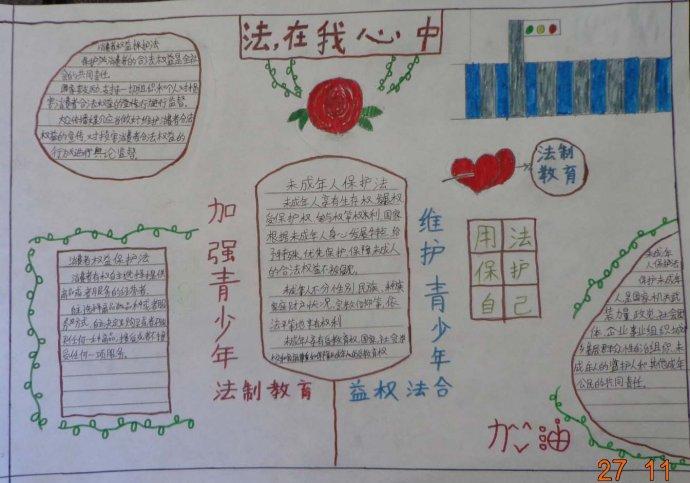 法,在我心中
消费者权益保护法
保护消费者的合法权益是全社
会的共同责任。
国家鼓励、支持一切组织和个人对损
害消费者合法权益的行为进行社会监督。
大众传播媒介应当做好维护消费者合法
权益的宣传,对损害消费者合法权益的
行为进行舆论监督。
法制
教育
未成年人保护法
未成年人享有生存权、发展权
受保护权、参与权等权利,国家
根据未成年人身心发展特点给
予特殊、优先保护,保障未成年人
的合法权益不被侵犯。
未成年人不分性别、民族、种族
家庭财产状况、宗教信仰等,依
法平等地享有权利
未成年人享有受教育权,国家、社会、学校
加强青少年
法制教育
维护青少年
益权法合
用法
保护
自己
消费者权益保护法
消费者有权自主选择提供
商品或者服务的经营者,
任何一种商品、接受或者不接
受任何一项服务。
未成年
人保护法
保护未成年
人,是国家机关、武
装力量、政党、社会团
体、企业事业组织、城
乡基层群众性自治组织、未
成年人的监护人和其他成年
公民的共同责任。
加油
27 11